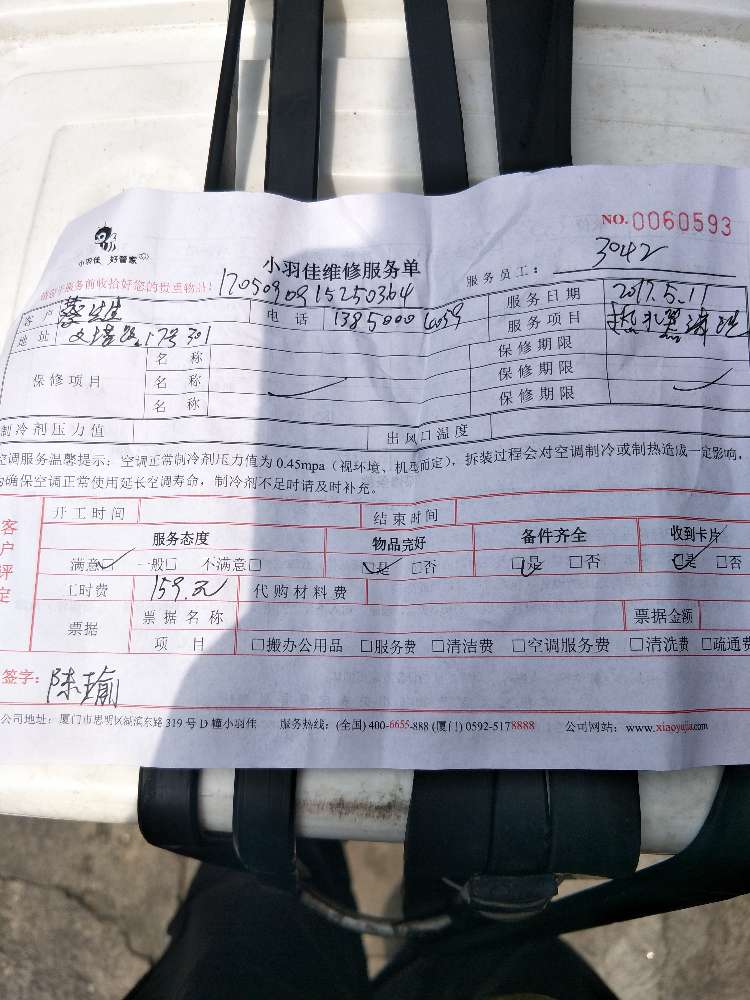 NO.0060593
小羽佳 好管家
小羽佳维修服务单
服务员工： 3042
请在服务前收拾好您的贵重物品！ 1705090915250364
客户 蔡先生 电话 服务日期 2017.5.11
地址 文塔路17号301 服务项目 热水器清洗
保修项目 名称 保修期限
名称 保修期限
名称 保修期限
制冷剂压力值 出风口温度
空调服务温馨提示：空调正常制冷剂压力值为0.45mpa（视环境、机型而定），拆装过程会对空调制冷或制热造成一定影响，
为确保空调正常使用延长空调寿命，制冷剂不足时请及时补充。
客户评定
开工时间 结束时间
服务态度 物品完好 备件齐全 收到卡片
满意☑ 一般□ 不满意□ ☑是 □否 ☑是 □否 ☑是 □否
工时费 159.元 代购材料费
票据 票据名称 票据金额
项目 □搬办公用品 □服务费 □清洁费 □空调服务费 □清洗费 □疏通费
签字： 陈瑜
公司地址：厦门市思明区湖滨东路319号D幢小羽佳 服务热线：(全国) 400-6655-888 (厦门) 0592-5178888 公司网站：www.xiaoyujia.com